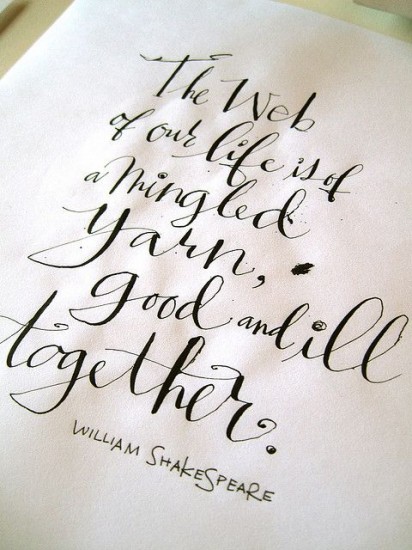 The Web
of our life is of
a mingled
yarn,
good and ill
together.
WILLIAM SHAKESPEARE